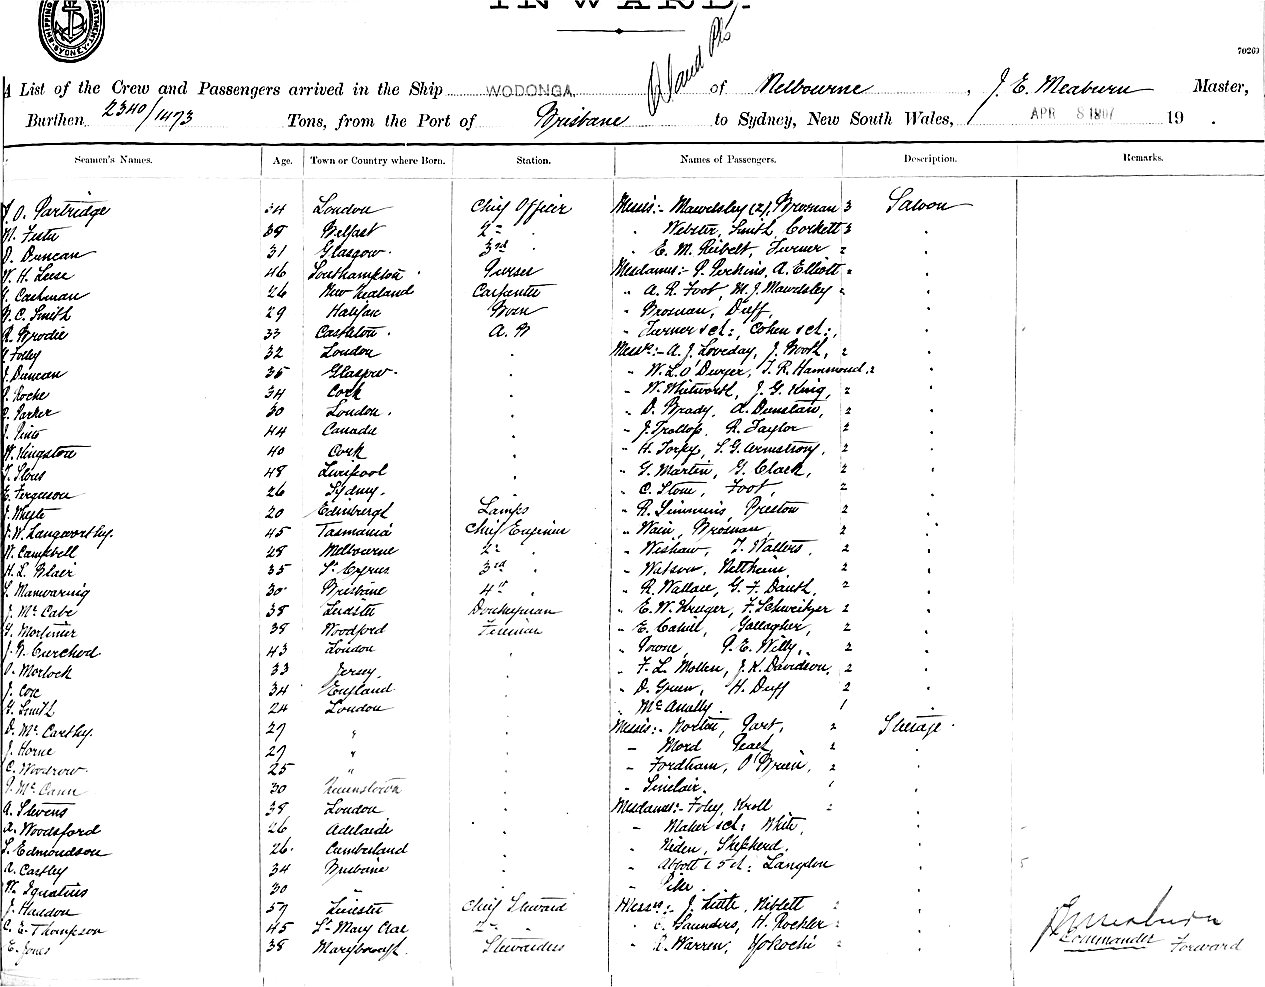 INWARD.
SHIPPING DEPARTMENT SYDNEY
70269
A List of the Crew and Passengers arrived in the Ship WODONGA of Melbourne, J. E. Meaburn Master,
Burthen 2340/1473 Tons, from the Port of Brisbane to Sydney, New South Wales, APR 8 1907 19 .
Seamen's Names. Age. Town or Country where Born. Station. Names of Passengers. Description. Remarks.
O. Partridge 34 London Chief Officer Messrs:- Mawdsley (2), Brosnan 3 Saloon
38 Belfast 2nd " Webster, Smith, Corkett 3
D. Duncan 31 Glasgow 3rd " E. M. Reibelt, Turner 2
W. H. Leese 46 Southampton Purser Mesdames:- P. Perkins, A. Elliott
Cashman 26 New Zealand Carpenter " A. R. Foot, M. J. Mawdsley
C. Smith 29 Halifax Bosn " Brosnan, Duff,
R. Brodie 33 Castleton A. B " Turner & ch:, Cohen & ch:,
Foley 32 London Messrs:- A. J. Loveday, J. Booth, 2
J. Duncan 35 Glasgow " W. L. O'Dwyer, T. R. Hammond 2
Roche 34 Cork " W. Whitworth, J. G. King, 2
Parker 30 London " D. Brady, A. Dunstan, 2
J. Pinto 44 Canada " J. Trollop, R. Taylor 2
W. Kingston 40 Cork " H. Torpy, S. G. Armstrong, 2
48 Liverpool " G. Martin, G. Clack, 2
E. Ferguson 26 Sydney " C. Stone, Foot, 2
J. Whyte 20 Edinburgh Lamps " R. Simmins, Preston 2
W. Langworthy. 45 Tasmania Chief Engineer " Wain, Brosnan 2
W. Campbell 28 Melbourne 2nd " Wishaw, T. Walters 2
H. L. Blair 35 St Cyrus 3rd " Watson, Nettheim 2
S. Manwaring 30 Brisbane 4th " R. Wallace, G. F. Danth 2
J. McCabe 38 Leister Donkeyman " E. W. Kruger, F. Schweitzer 2
G. Mortimer 38 Woodford Fireman " E. Cahill, Gallagher, 2
J. B. Curchod 43 London " P. E. Willy, 2
O. Morlock 33 Jersey " F. L. Mollen, J. K. Davidson, 2
J. Coxe 34 England " D. Green, H. Duff 2
G. Smith 24 London " McAnally 1
D. McCarthy. 27 " Messrs:- Norton, Part, 2 Steerage
J. Horne 27 " Mord 2
C. Woodrow 25 " Fordham, O'Brien, 2
P. McCann 30 Queenstown " Sinclair. 1
A. Stevens 38 London Mesdames:- Foley, Kroll
A. Woodsford 26 Adelaide " Maher & ch: White,
S. Edmondson 26 Cumberland " Neden, Shepherd,
A. Castley 34 Brisbane " Abbott & 5 ch: Langdon
W. Ignatius 30 " Pike.
J. Haddon 57 Leicester Chief Steward Messrs:- J. Little, Niblett
C. E. Thompson 45 St Mary Cray 2nd " E. Saunders, H. Rockler
E. Jones 38 Maryborough Stewardess " R. Warren, Yokochi
J. E. Meaburn
Commander Forward